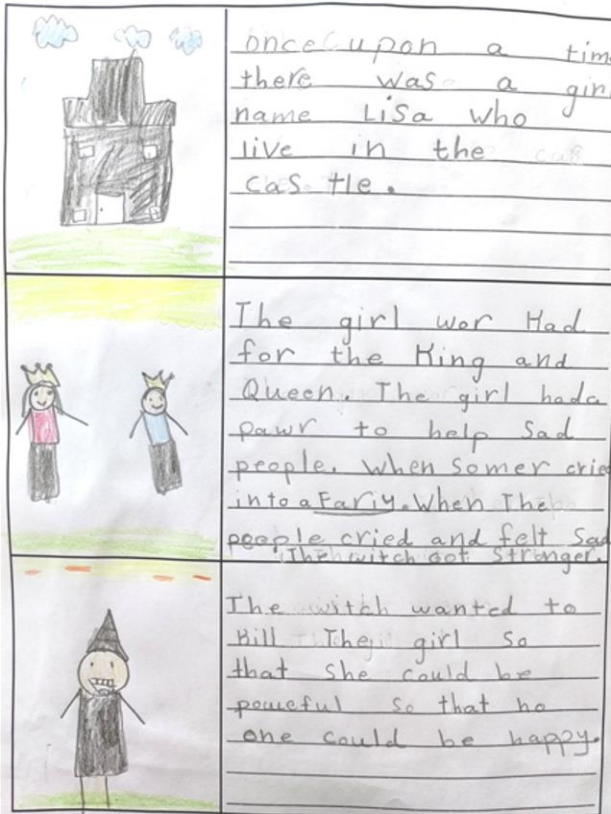 once upon a tim
there was a girl
name LiSa who
live in the
cas tle.
The girl wor Had
for the King and
Queen. The girl hada
pawr to help Sad
people. When Somer cried
into a Fariy. When The
people cried and felt Sad
The witch got Stronger.
The witch wanted to
Kill The girl so
that she could be
poweful so that no
one could be happy.